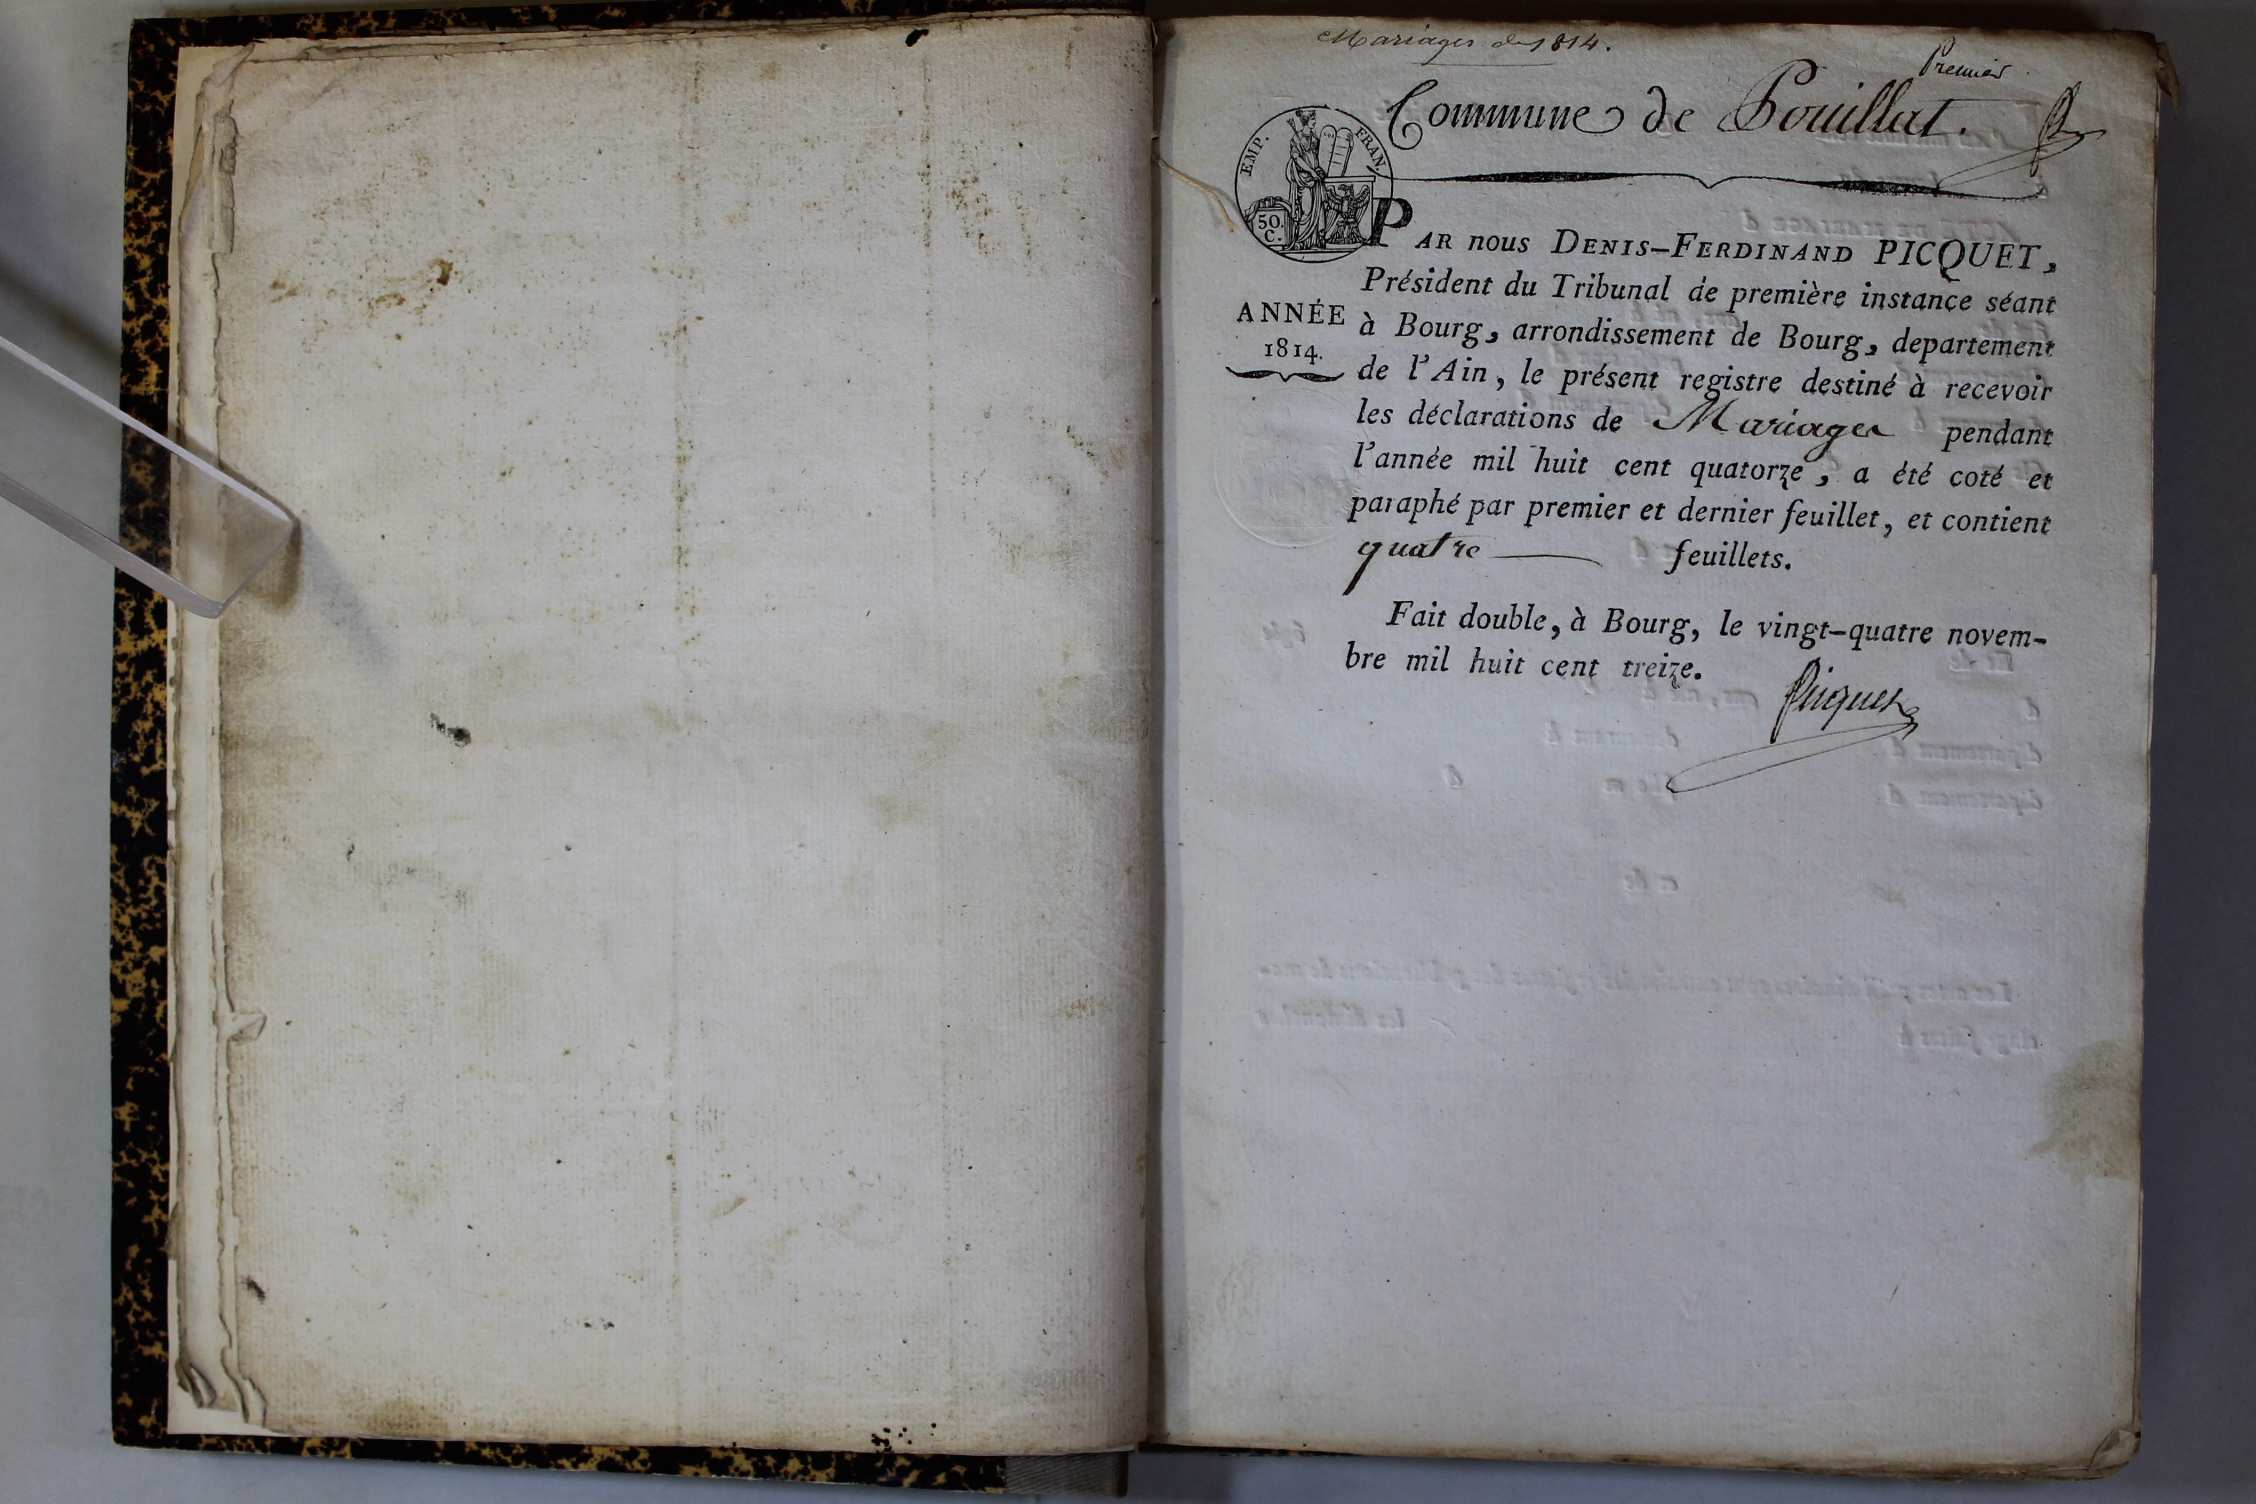 Mariages de 1814.
Premier
Commune de Pouillat.
EMP. FRAN.
50.
C.
PAR nous DENIS-FERDINAND PICQUET,
Président du Tribunal de première instance séant
ANNÉE
1814.
à Bourg, arrondissement de Bourg, departement
de l'Ain, le présent registre destiné à recevoir
les déclarations de Mariages pendant
l'année mil huit cent quatorze, a été coté et
paraphé par premier et dernier feuillet, et contient
quatre feuillets.
Fait double, à Bourg, le vingt-quatre novem-
bre mil huit cent treize.
Picquet